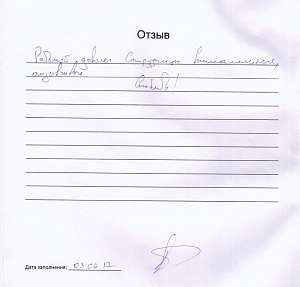 Отзыв
Работой довольна. Сотрудники внимательные,
отзывчивые.
Спасибо!
Дата заполнения: 03.06.12